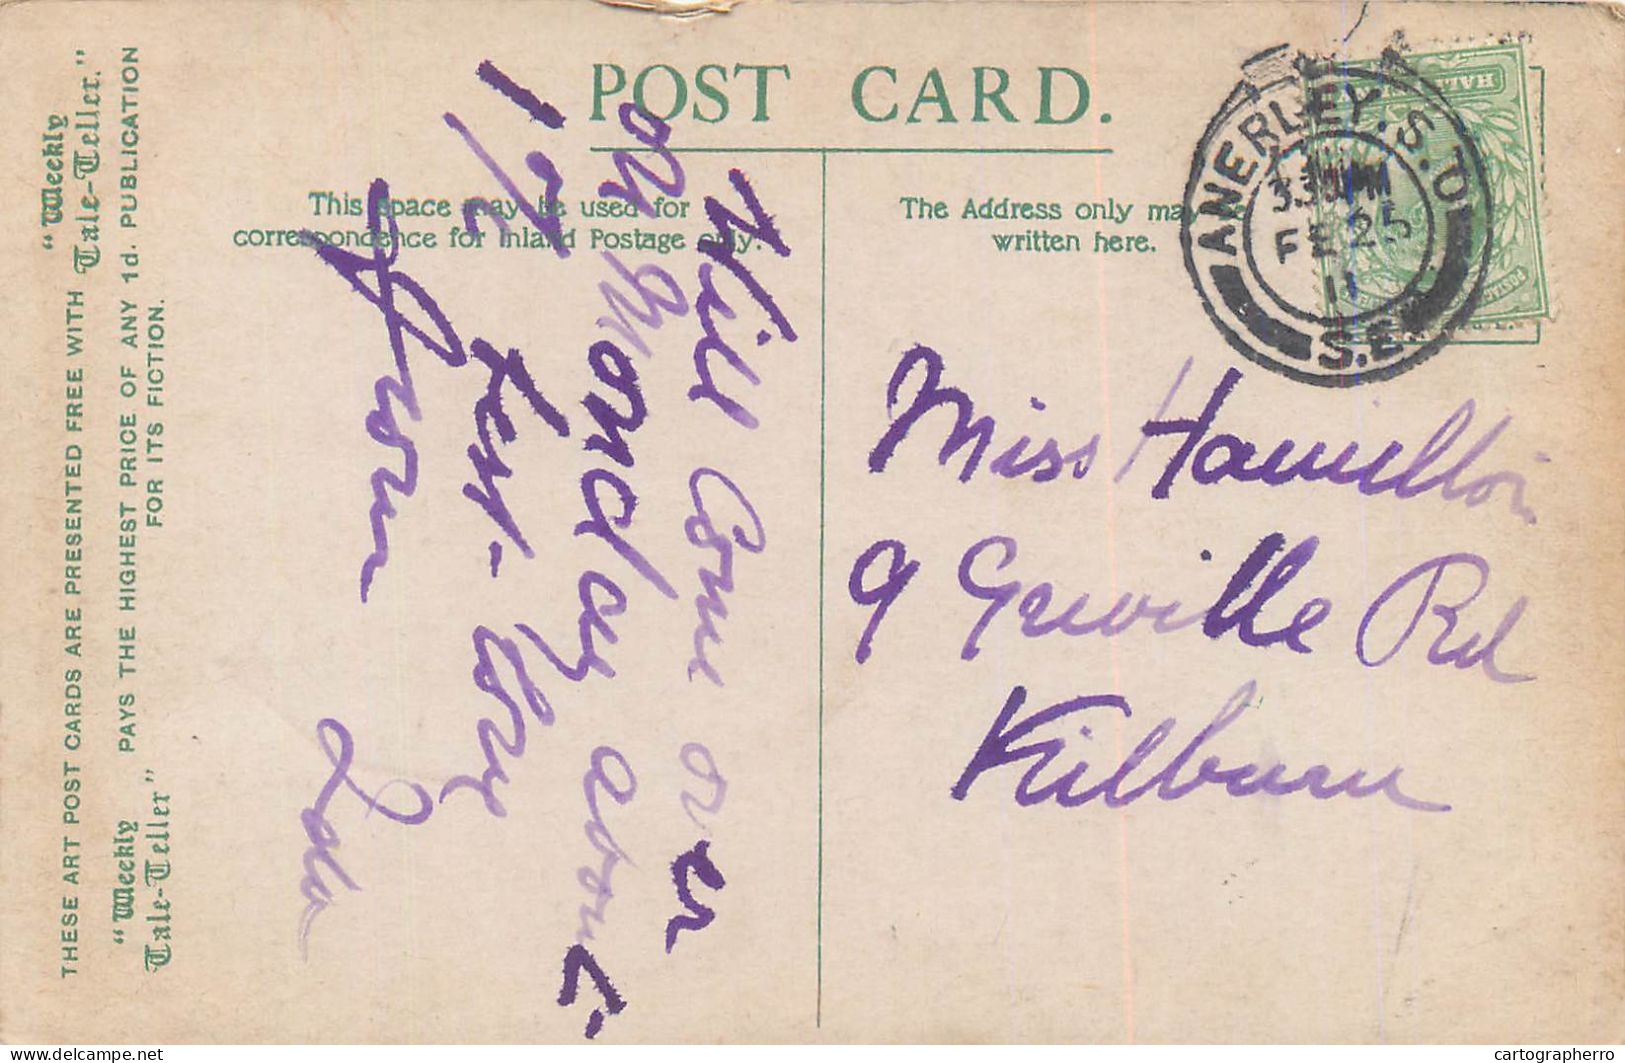 POST CARD.
This space may be used for
correspondence for Inland Postage only.
The Address only may
written here.
ANERLEY.S.O
3 30 PM
FE 25
11
S.E.
HALF
"Weekly
THESE ART POST CARDS ARE PRESENTED FREE WITH Tale-Teller."
"Weekly
Tale-Teller" PAYS THE HIGHEST PRICE OF ANY 1d. PUBLICATION
FOR ITS FICTION.
Will Come over
on Monday about
1 or
love
from
Miss Hamilton
9 Greville Rd
Kilburn
cartographerro